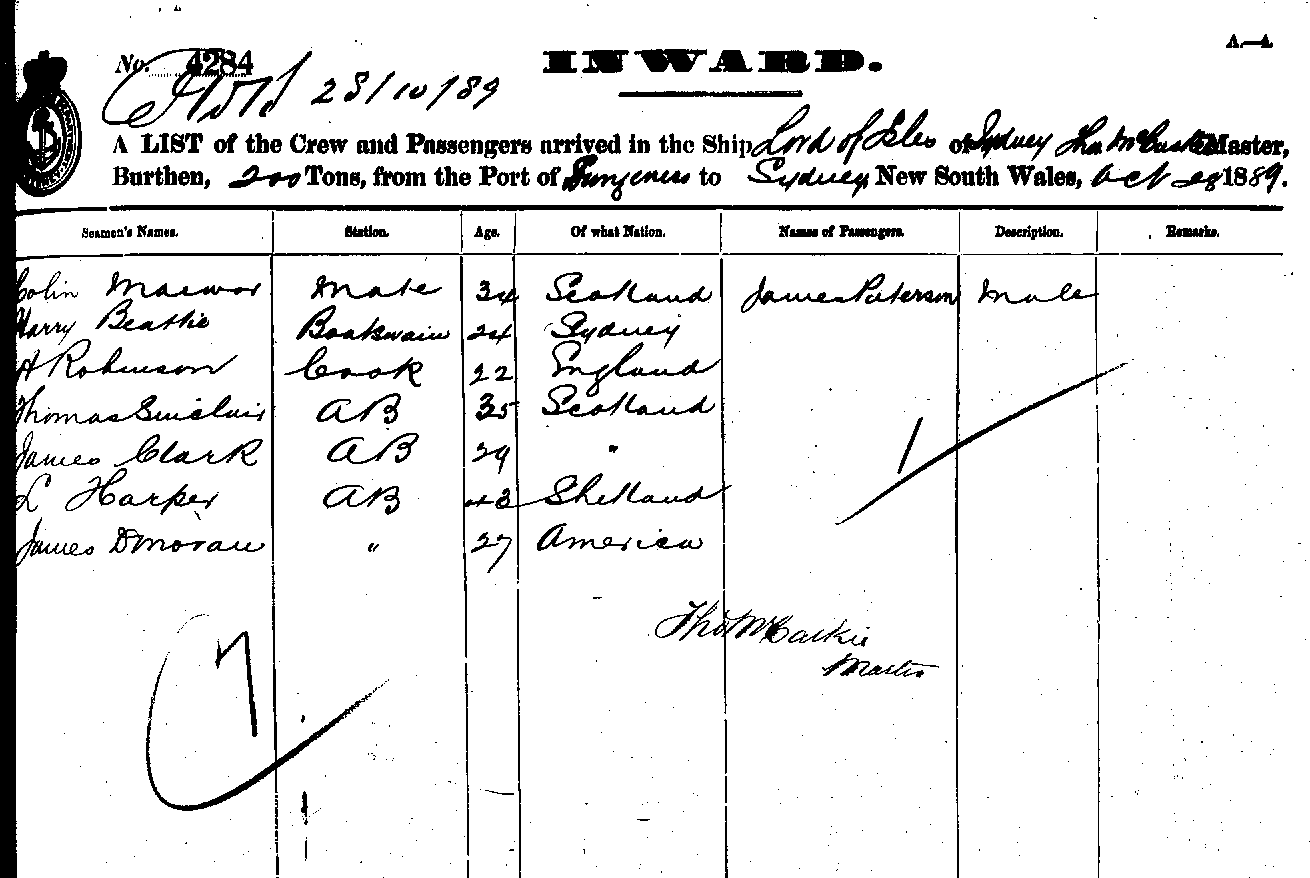 A.—A.
No. 4284 INWARD.
28/10/89
A LIST of the Crew and Passengers arrived in the Ship Lord of Isles of Sydney Thos Master,
Burthen, 200 Tons, from the Port of to Sydney New South Wales, Oct 28 1889.
Seamen's Names. Station. Age. Of what Nation. Names of Passengers. Description. Remarks.
Colin Mate 34 Scotland James Paterson Male
Harry Beattie Boatswain 24 Sydney
A Robinson Cook 22 England
Thomas Sinclair AB 35 Scotland
James Clark AB 29 "
L Harper AB 43 Shetland
James Donovan " 27 America
1
Thos McCaskie
Master
7